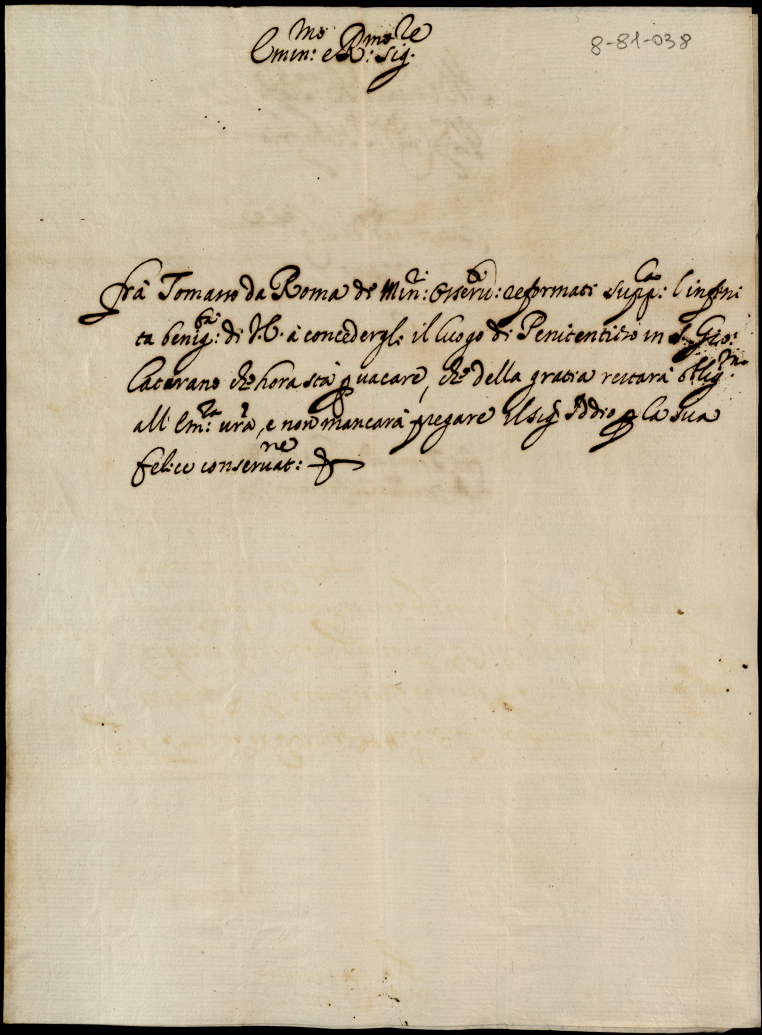 8-81-038
Emin:mo e R:mo Sig:re
frà Tomasso da Roma de Min:ri Osseru:ti reformati supp:ca l'infini
ta benig:tà di V.E. à concedergl: il luogo di Penitentiero in S. Gio:
Laterano che hora stà p uacare, che della gratia restarà oblig:mo
all' Em:za urã, e non mancarà pregare Il sig.r Iddio p la sua
felice conseruat:ne